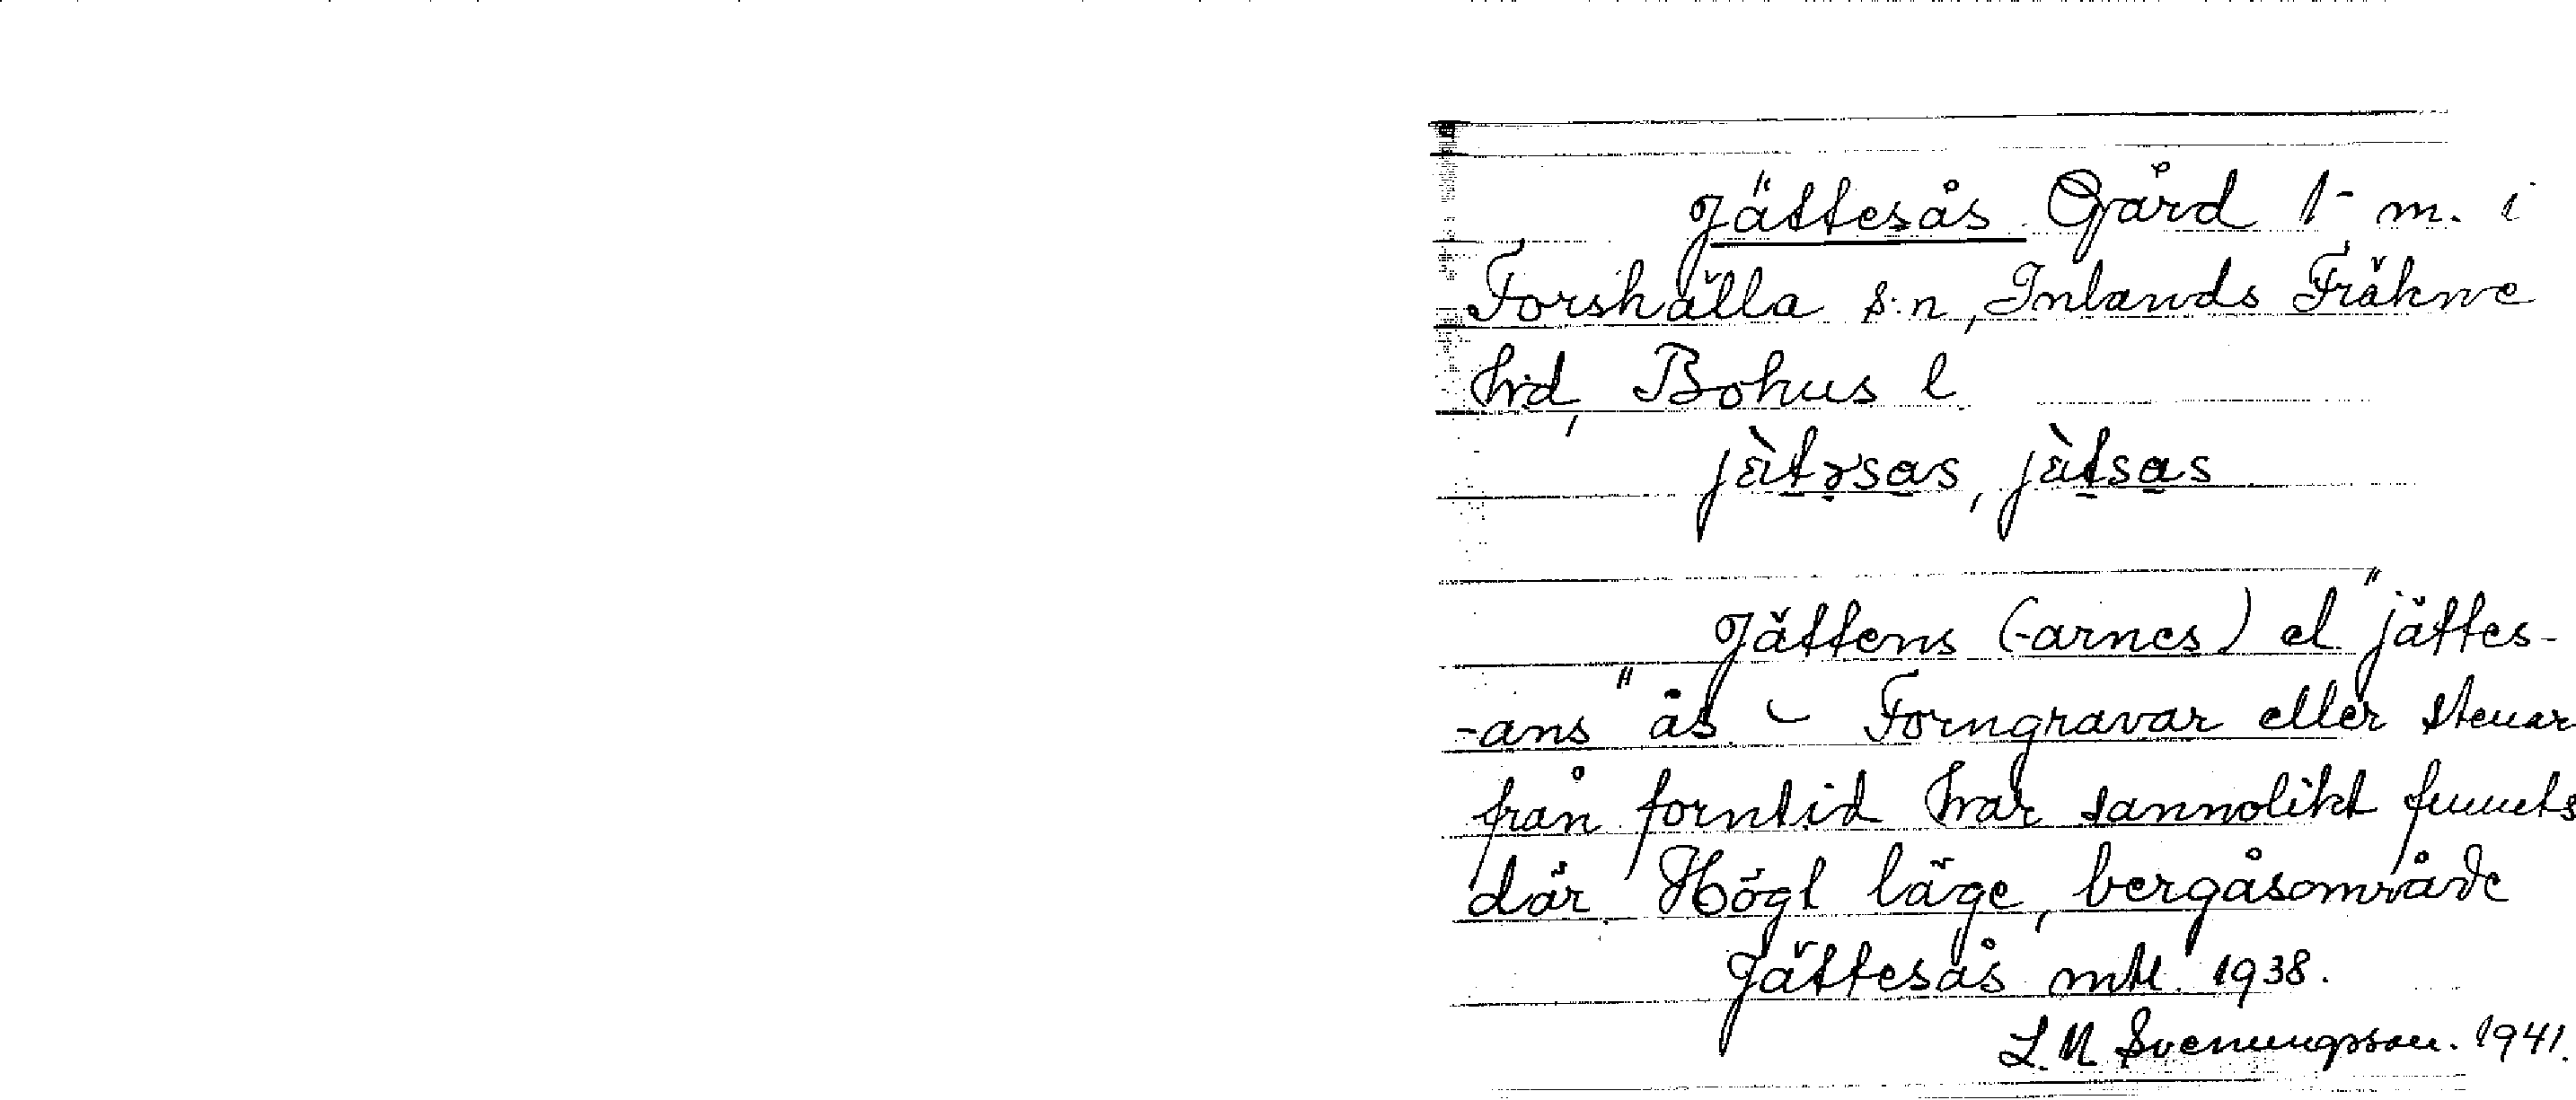 Jättesås Gård 1- m. i
Forshälla s:n, Inlands Fräkne
hrd, Bohus l
jä̀tɤsas, jä̀tsas
Jättens (-arnes) el "jättes-
-ans" ås - Forngravar eller stenar
från forntid har sannolikt funnets
där. Högt läge, bergåsområde
Jättesås mtl. 1938.
L. M Svenungsson. 1941.